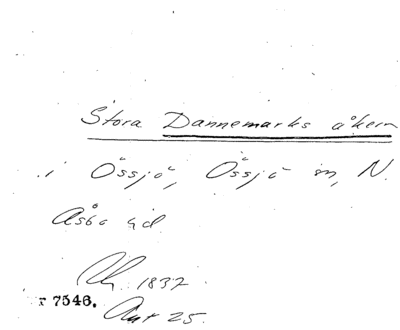 Stora Dannemarks åkern
i Össjö, Össjö sn, N.
Åsbo hd.
1837
r 7546.
Akt 25.